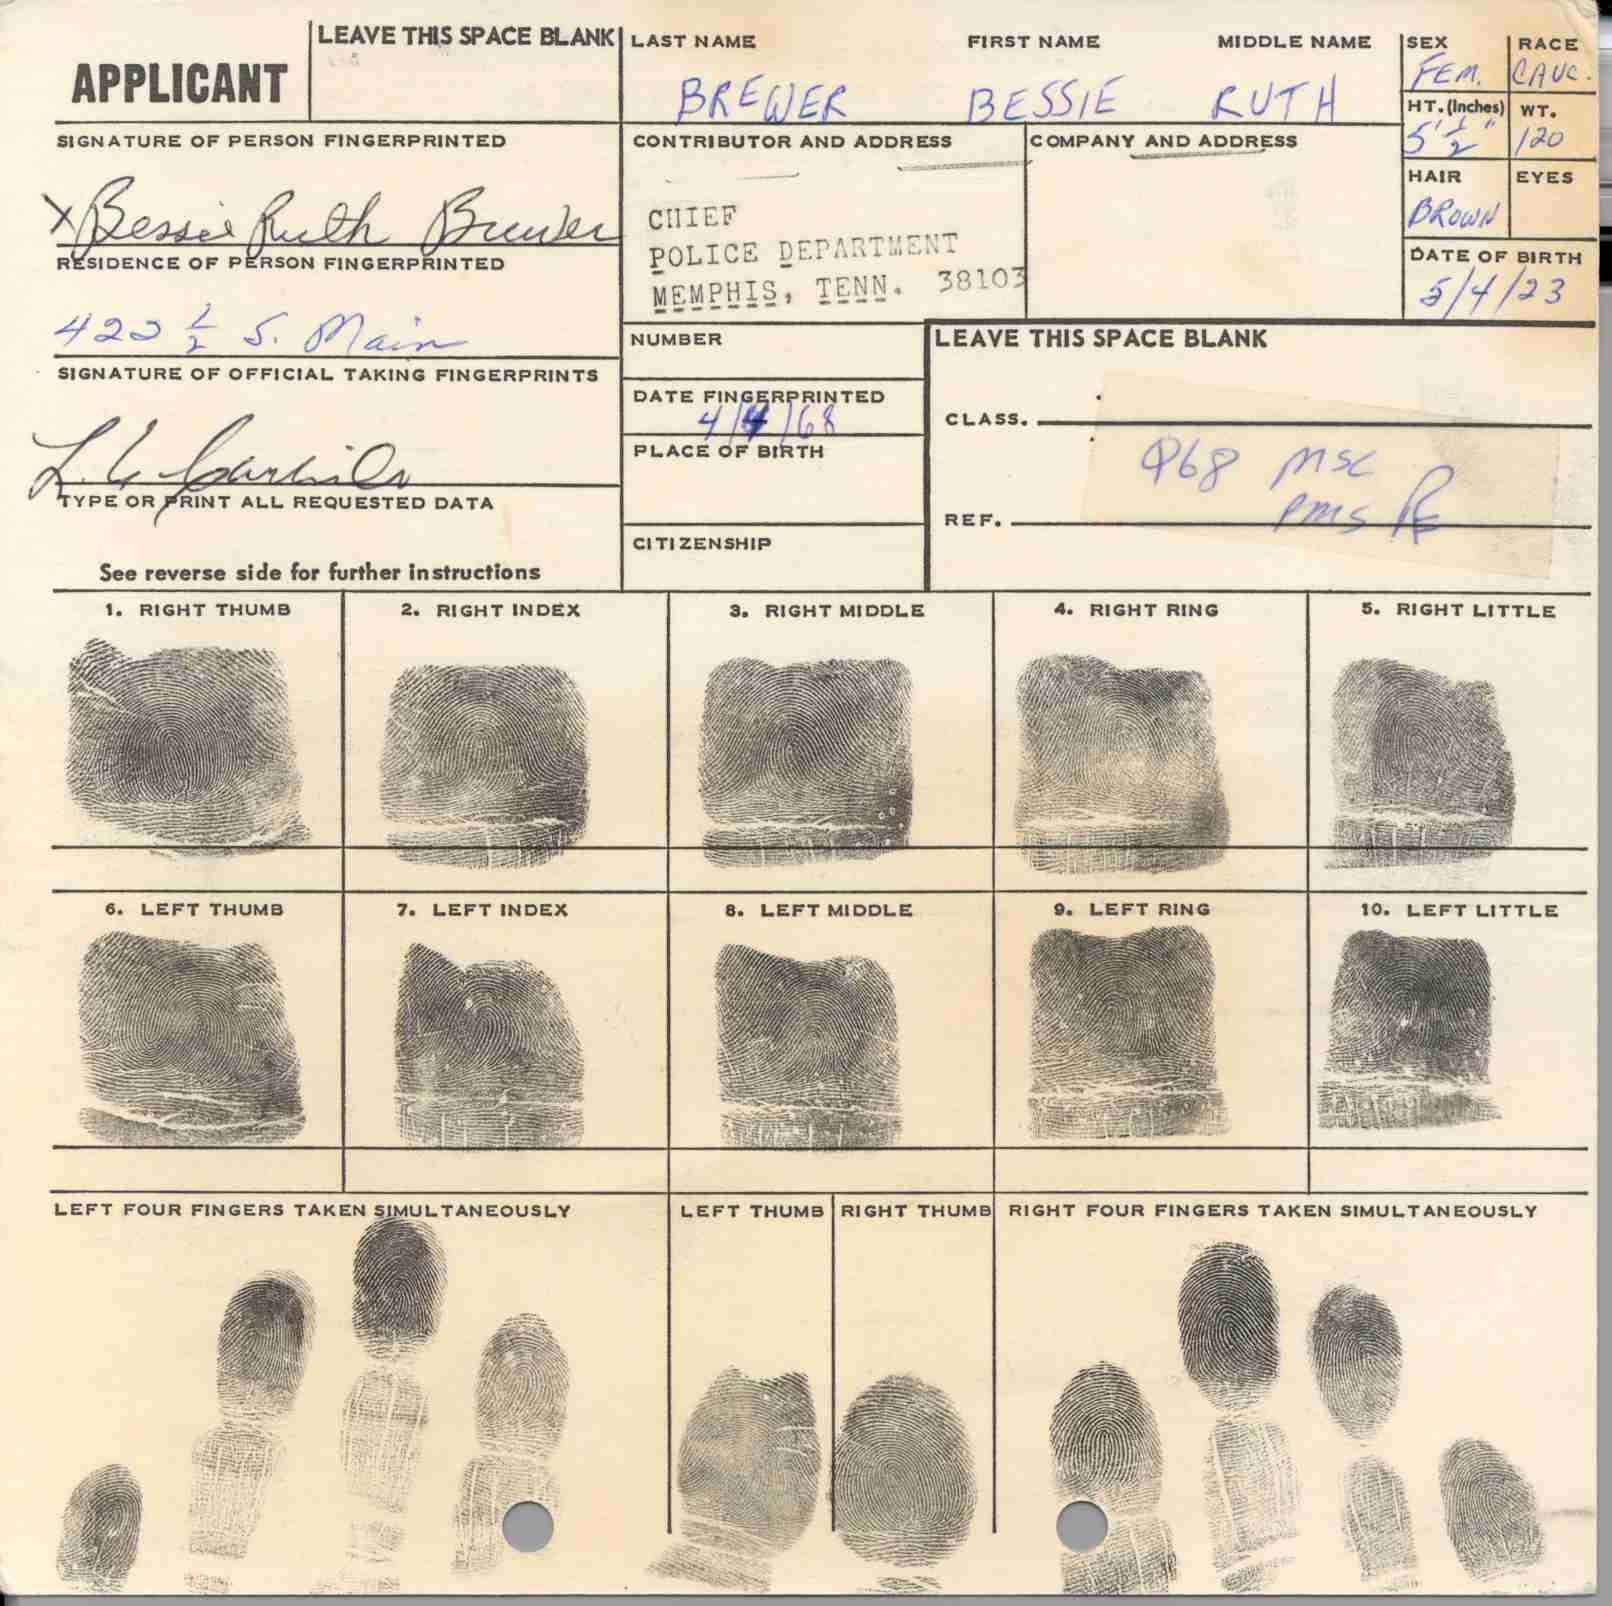 APPLICANT
LEAVE THIS SPACE BLANK
LAST NAME FIRST NAME MIDDLE NAME
BREWER BESSIE RUTH
SEX RACE
FEM. CAUC.
HT. (Inches) WT.
5' 1/2" 120
HAIR EYES
BROWN
DATE OF BIRTH
5/4/23
SIGNATURE OF PERSON FINGERPRINTED
X Bessie Ruth Brewer
RESIDENCE OF PERSON FINGERPRINTED
422 1/2 S. Main
SIGNATURE OF OFFICIAL TAKING FINGERPRINTS
TYPE OR PRINT ALL REQUESTED DATA
See reverse side for further instructions
CONTRIBUTOR AND ADDRESS
CHIEF
POLICE DEPARTMENT
MEMPHIS, TENN. 38103
COMPANY AND ADDRESS
NUMBER
DATE FINGERPRINTED
4/4/68
PLACE OF BIRTH
CITIZENSHIP
LEAVE THIS SPACE BLANK
CLASS.
MSC
PMS
REF.
1. RIGHT THUMB
2. RIGHT INDEX
3. RIGHT MIDDLE
4. RIGHT RING
5. RIGHT LITTLE
6. LEFT THUMB
7. LEFT INDEX
8. LEFT MIDDLE
9. LEFT RING
10. LEFT LITTLE
LEFT FOUR FINGERS TAKEN SIMULTANEOUSLY
LEFT THUMB
RIGHT THUMB
RIGHT FOUR FINGERS TAKEN SIMULTANEOUSLY